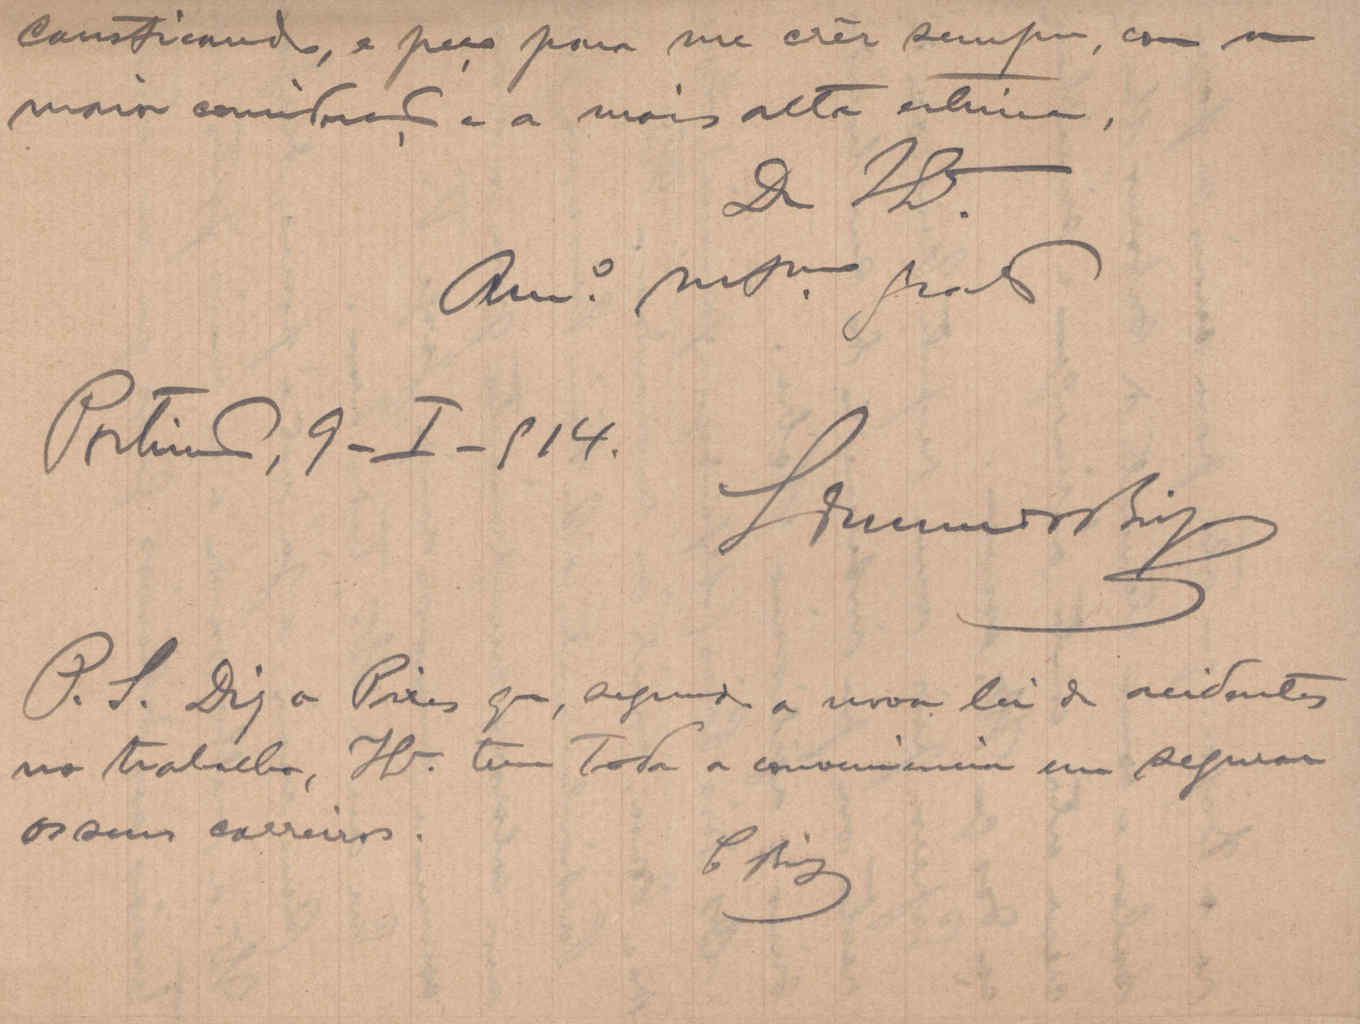 causticando, e peço para me crêr sempre, com a
maior consideração e a mais alta estima,
De V.
Am.º mt.º grato
Portimão, 9-I-914.
P. S. Diz o Pires que, segundo a nova lei de acidentes
no trabalho, V. tem toda a conveniencia em segurar
os seus carreiros.